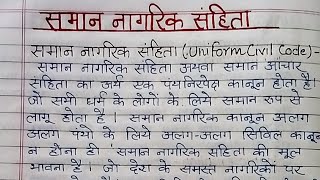 समान नागरिक संहिता
समान नागरिक संहिता (Uniform Civil Code)-
समान नागरिक संहिता अथवा समान आचार
संहिता का अर्थ एक पंथनिरपेक्ष कानून होता है।
जो सभी धर्म के लोगों के लिये समान रूप से
लागू होता है। समान नागरिक कानून अलग
अलग पंथो के लिये अलग-अलग सिविल कानून
न होना ही 'समान नागरिक संहिता की मूल
भावना है। जो देश के समस्त नागरिकों पर